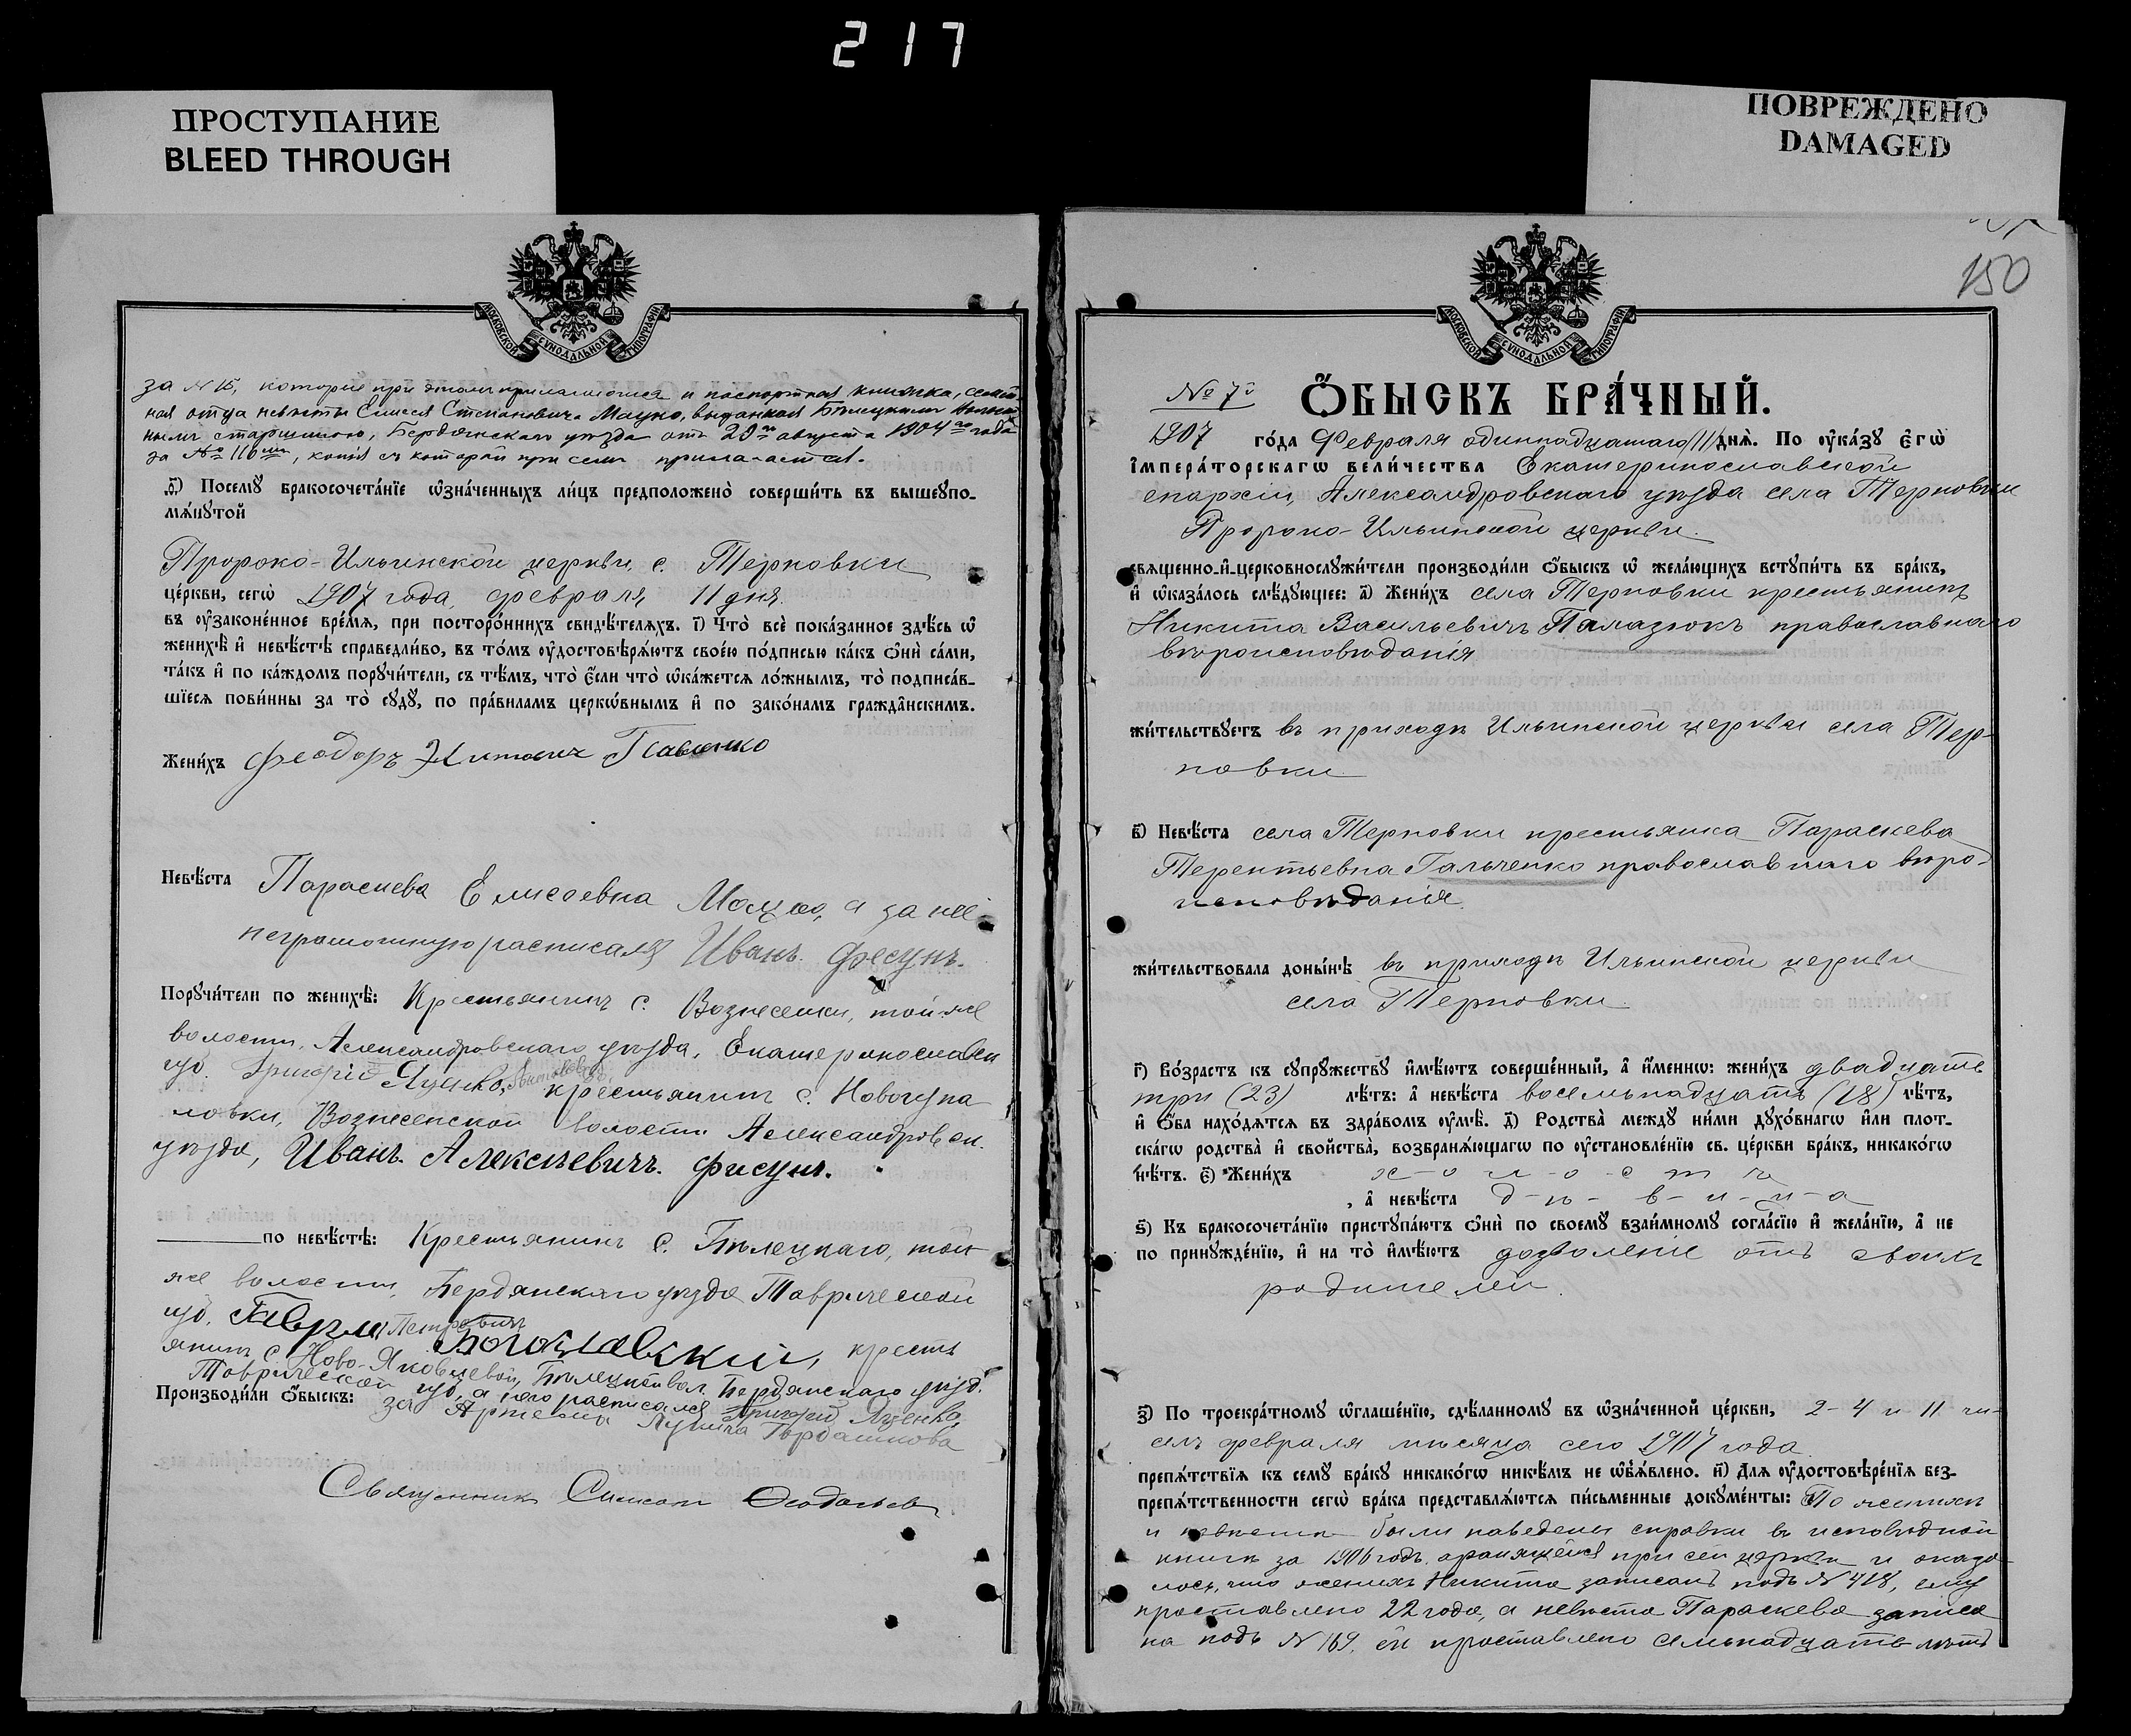 217
ПРОСТУПАНИЕ
BLEED THROUGH
ПОВРЕЖДЕНО
DAMAGED
МОСКОВСКОЙ СѴНОДАЛЬНОЙ ТИПОГРАФІИ
за № 15, которые при этомъ прилагаются и паспортная книжка, семей-
ная отца невѣсты Елисея Степановича Мацко, выданная Бѣлецкимъ волост
нымъ старшиною, Бердянскаго уѣзда отъ 29го августа 1904го года
за № 116мъ, копія съ которой при семъ прилагается.
Ѳ҃) Посемꙋ бракосочета́нїе ѡ҆зна́ченныхъ ли́цъ предположено̀ соверши́ть въ вышеꙋпо-
мѧ́нꙋтой
Пророко-Ильинской церкви, с. Терновки
це́ркви, сегѡ̀ 1907 года, февраля 11 дня.
въ ᲂу҆зако́ненное вре́мѧ, при посторо́ннихъ свидѣ́телѧхъ. І҃) Что̀ всѐ пока́занное здѣ́сь ѡ҆
женихѣ̀ и҆ невѣ́стѣ справедли́во, въ то́мъ ᲂу҆достовѣрѧ́ютъ свое́ю по́дписью ка́къ ѻ҆нѝ са́ми,
та́къ и҆ по ка́ждомъ порꙋчи́тели, съ тѣ́мъ, что̀ є҆́сли что̀ ѡ҆ка́жетсѧ ло́жнымъ, то̀ подписа́в-
шїесѧ пови́нны за то̀ сꙋдꙋ̀, по пра́виламъ церкѡ́внымъ и҆ по зако́намъ гражда̑нскимъ.
Жени́хъ Феодоръ Павленко
Невѣ́ста Параскева Елисеевна Мацко, а за неё
неграмотную росписался Иванъ. Фесунъ.
Порꙋчи́тели по женихѣ̀: Крестьянинъ с. Вознесенки, той-же
волости, Александровскаго уѣзда, Екатеринославск
губ. Григорій Яценко, крестьянинъ с. Новогупа
ловки, Вознесенской волости Александровск.
уѣзда, Иванъ. Алексѣевичъ. Фисунъ.
по невѣ́стѣ: Крестьянинъ с. Бѣлецкаго, той
же волости, Бердянскаго уѣзда Таврической
губ. Петровичъ Богославскій, кресть
янинъ с. Ново-Яковлевой, Бѣлецкой вол. Бердянскаго уѣзд.
Таврической губ, а него росписался Григорій Яценко
Производи́ли ѻ҆́быскъ: за Артема
Священникъ Симеонъ
150
№ 7й
ѺБЫСКЪ БРА́ЧНЫЙ.
1907 го́да Февраля одиннадцатаго /11/ днѧ̀. По ᲂу҆ка́зꙋ є҆гѡ̀
і҆мпера́торскагѡ вели́чества Екатеринославской
епархіи, Александровскаго уѣзда села Терновки
Пророко-Ильинской церкви.
свѧще́нно-и҆-церковнослꙋжи́тели производи́ли ѻ҆́быскъ ѡ҆ жела́ющихъ встꙋпи́ть въ бра́къ,
и҆ ѡ҆каза́лось слѣ́дꙋющее: а҃) Жени́хъ села Терновки крестьянинъ
Никита Васильевичъ Памазюкъ православнаго
вѣроисповѣданія
жи́тельствꙋетъ въ приходѣ Ильинской церкви села Тер-
новки
в҃) Невѣ́ста села Терновки крестьянка Параскева
Терентьевна Гальченко православнаго вѣро-
исповѣданія.
жи́тельствовала доны́нѣ въ приходѣ Ильинской церкви
села Терновки.
г҃) Во́зрастъ къ сꙋпрꙋ́жествꙋ и҆мѣ́ютъ соверше́нный, а҆ и҆́меннѡ: жени́хъ двадцать
три (23) лѣ́тъ: а҆ невѣ́ста восемьнадцать (18) лѣ́тъ,
и҆ ѻ҆́ба нахо́дѧтсѧ въ здра́вомъ ᲂу҆мѣ̀. д҃) Родства̀ междꙋ̀ ни́ми дꙋхо́внагѡ и҆лѝ плот-
ска́гѡ родства̀ и҆ свойства̀, возбранѧ́ющагѡ по ᲂу҆становле́нїю св. це́ркви бра́къ, никако́гѡ
нѣ́тъ. є҃) Жени́хъ х-о-л-о-с-т-ъ
, а҆ невѣ́ста д-ѣ-в-и-ц-а
ѕ҃) Къ бракосочета́нїю пристꙋпа́ютъ ѻ҆нѝ по своемꙋ̀ взаи́мномꙋ согла́сїю и҆ жела́нїю, а҆ не
по принꙋжде́нїю, и҆ на то̀ и҆мѣ́ютъ дозволеніе отъ своихъ
родителей.
з҃) По троекра́тномꙋ ѡ҆глаше́нїю, сдѣ́ланномꙋ въ ѡ҆зна́ченной це́ркви, 2-4 и 11 чи-
селъ февраля мѣсяца сего 1907 года
препѧ́тствїѧ къ семꙋ̀ бра́кꙋ никако́гѡ никѣ́мъ не ѡ҆б̾ѧ́влено. и҃) Длѧ ᲂу҆достовѣре́нїѧ без-
препѧ́тственности сегѡ̀ бра́ка представлѧ́ютсѧ пи́сьменные докꙋме́нты: По женихѣ
и невѣстѣ были наведены справки въ исповѣдной
книгѣ за 1906 годъ хранящейся при сей церкви и оказа-
лось, что женихъ Никита записанъ подъ № 418, ему
проставлено 22 года, а невѣста Параскева записа
на подъ № 169, ей проставлено семьнадцать лѣтъ